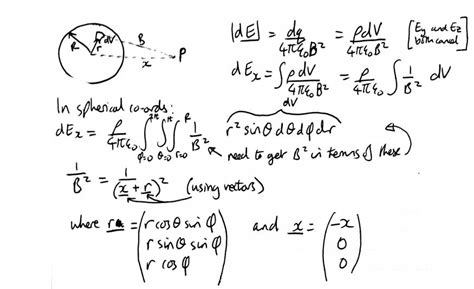 R r ρdV B x P
|dE| = dq / 4πε₀B² = ρdV / 4πε₀B² [Ey and Ez both cancel]
dEx = ∫dV ρdV / 4πε₀B² = ρ / 4πε₀ ∫ 1/B² dV
In spherical co-ords:
dEx = ρ / 4πε₀ ∫φ=0^2π ∫θ=0^π ∫r=0^R 1/B² r² sinθ dθ dφ dr
need to get B² in terms of these
1/B² = 1 / (x + r)² (using vectors)
where r = (r cosθ sinφ
r sinθ sinφ
r cosφ) and x = (-x
0
0)